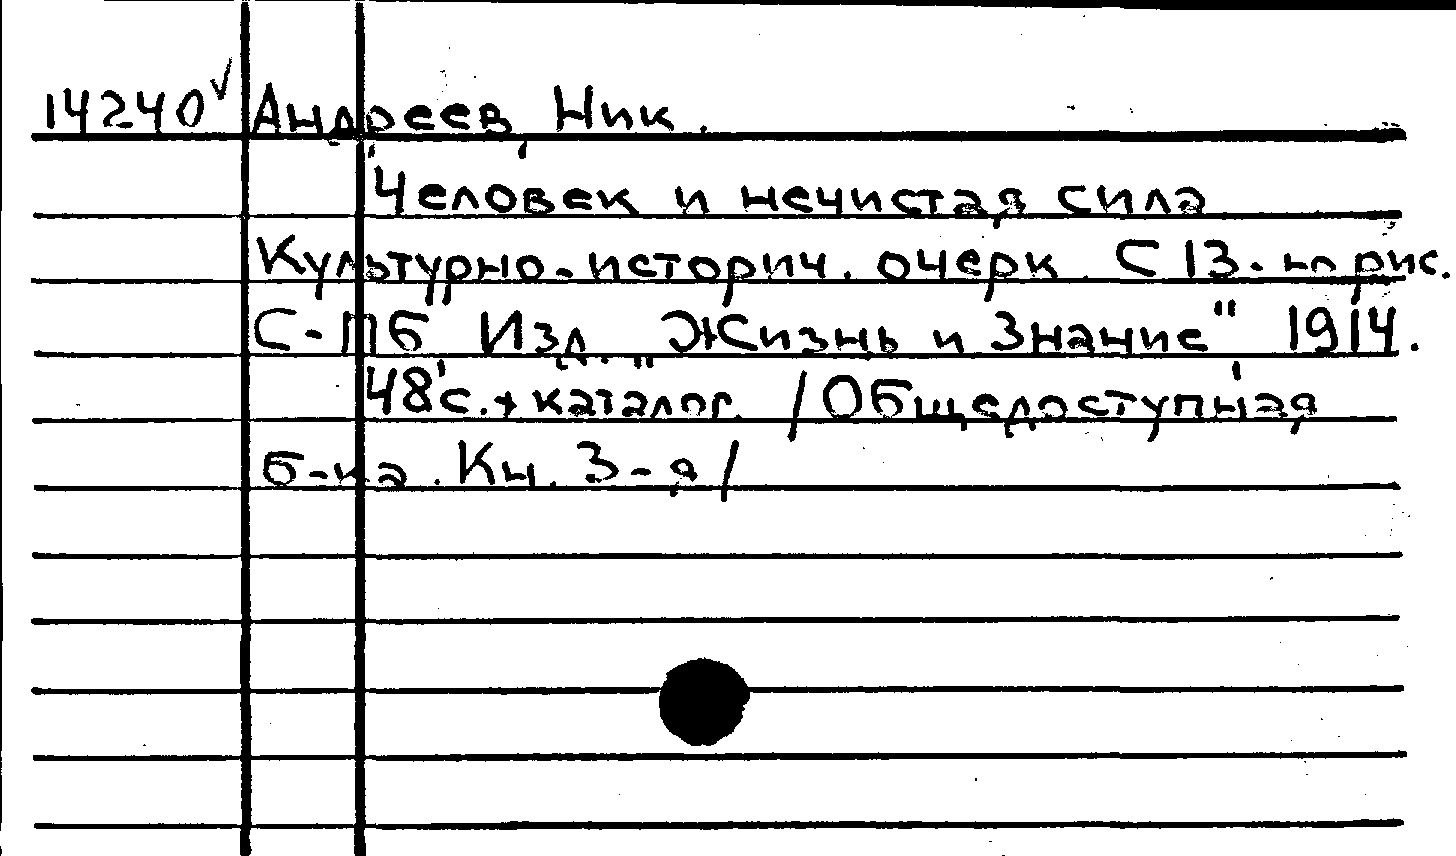 14240 √ Андреев, Ник.
Человек и нечистая сила
Культурно-историч. очерк. С 13-ю рис.
С-Пб, Изд. „Жизнь и Знание" 1914.
48 с. + каталог. /Общедоступная
б-ка. Кн. 3-я/